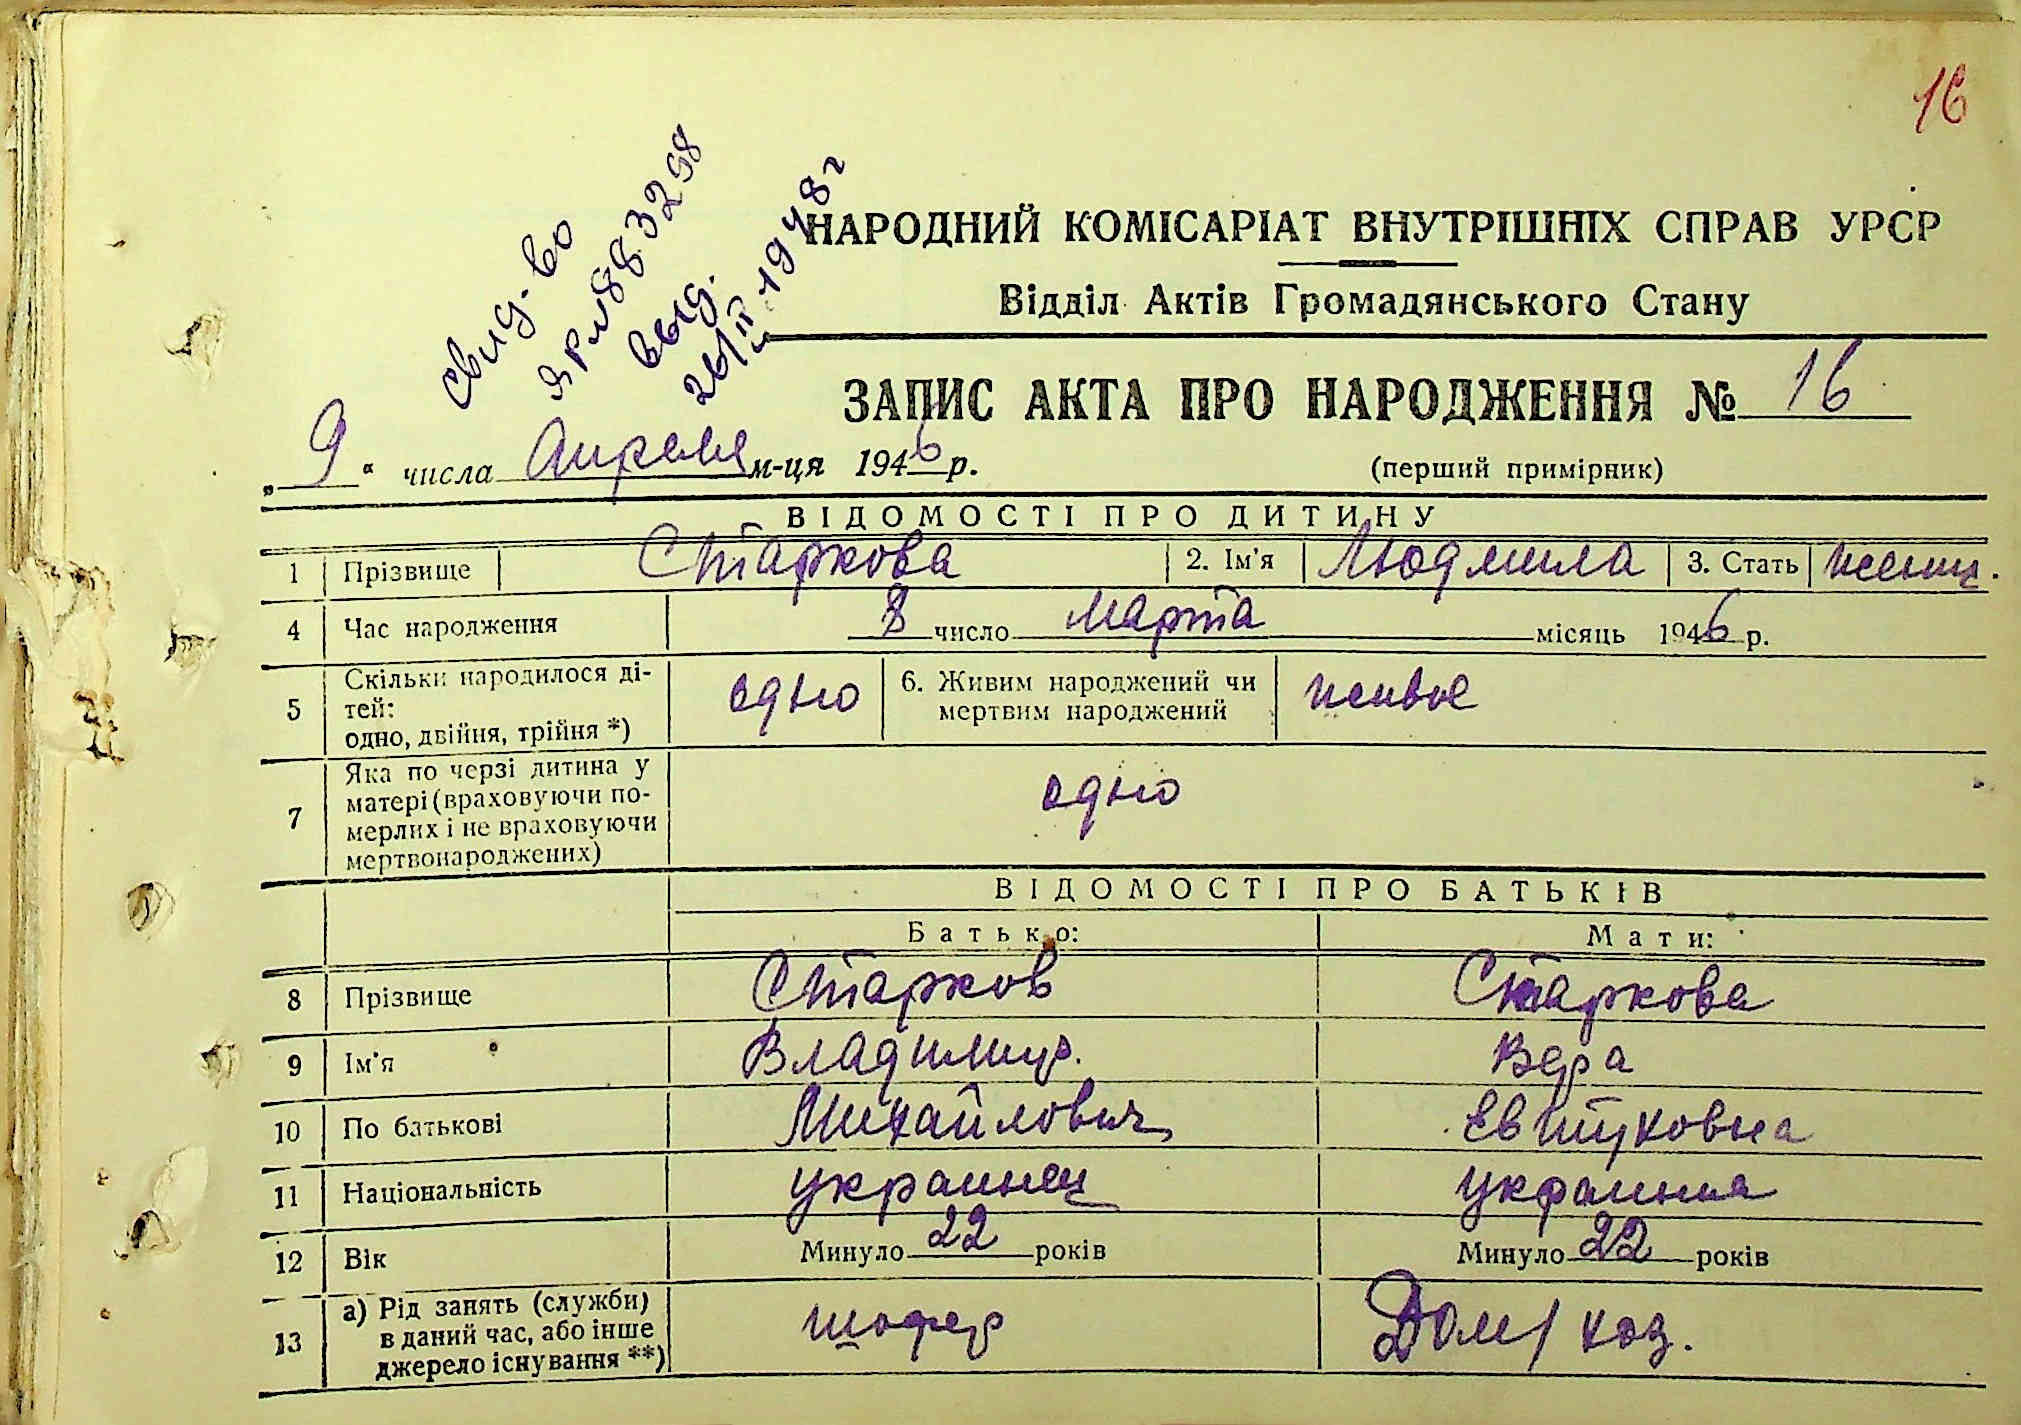 16
свид-во
ЯРл883258
выд.
26/II 1948г
НАРОДНИЙ КОМІСАРІАТ ВНУТРІШНІХ СПРАВ УРСР
Відділ Актів Громадянського Стану
ЗАПИС АКТА ПРО НАРОДЖЕННЯ № 16
„9“ числа Апреля м-ця 1946 р. (перший примірник)
ВІДОМОСТІ ПРО ДИТИНУ
1 Прізвище Старкова 2. Ім'я Людмила 3. Стать женщ.
4 Час народження 8 число марта місяць 1946 р.
5 Скільки народилося ді-
тей:
одно, двійня, трійня *) одно 6. Живим народжений чи
мертвим народжений живое
7 Яка по черзі дитина у
матері (враховуючи по-
мерлих і не враховуючи
мертвонароджених) одно
ВІДОМОСТІ ПРО БАТЬКІВ
Батько: Мати:
8 Прізвище Старков Старкова
9 Ім'я Владимир. Вера
10 По батькові Михайлович Евтуховна
11 Національність украинец украинка
12 Вік Минуло 22 років Минуло 22 років
13 а) Рід занять (служби)
в даний час, або інше
джерело існування **) шофер Дом/хоз.